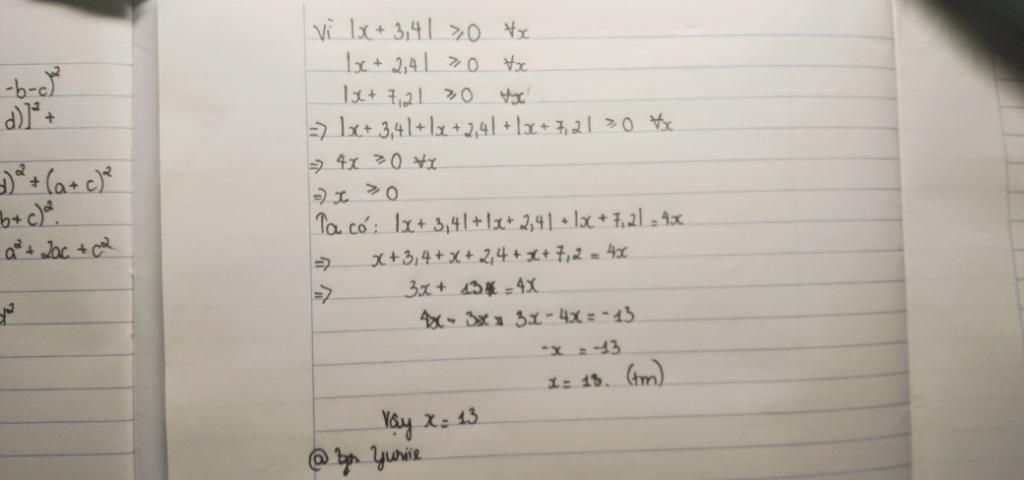 -b-c)²
d)]² +
d)² + (a + c)²
b + c)².
a² + 2ac + c²
Vì |x + 3,4| ⩾ 0 ∀x
|x + 2,4| ⩾ 0 ∀x
|x + 7,2| ⩾ 0 ∀x
=> |x + 3,4| + |x + 2,4| + |x + 7,2| ⩾ 0 ∀x
=> 4x ⩾ 0 ∀x
=> x ⩾ 0
Ta có: |x + 3,4| + |x + 2,4| + |x + 7,2| = 4x
=> x + 3,4 + x + 2,4 + x + 7,2 = 4x
=> 3x + 13 = 4x
3x - 4x = -13
-x = -13
x = 13. (tm)
Vậy x = 13
@ Yuriie